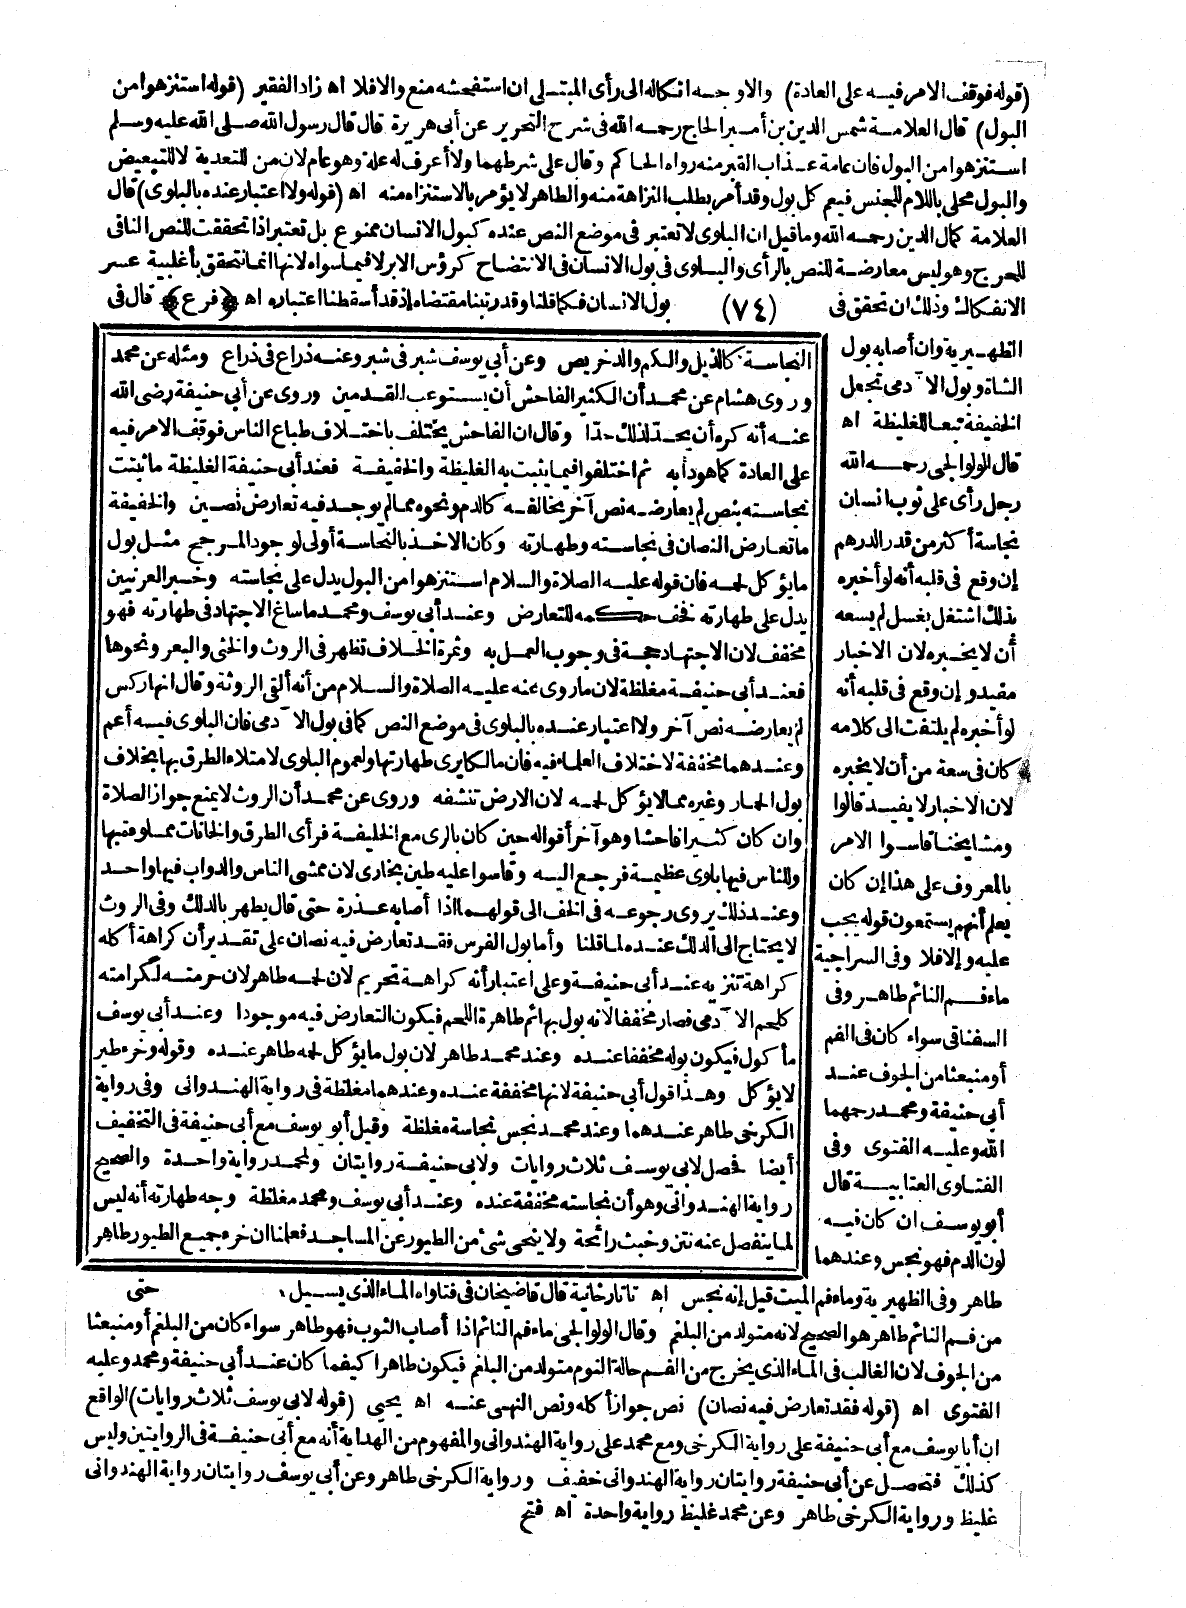 (قوله فوقف الامر فيه على العادة) والاوجه انكاله الى رأى المبتلى ان استفحشه منع والافلا اه زاد الفقير (قوله استنزهوا من
البول) قال العلامة شمس الدين بن أمير الحاج رحمه الله فى شرح التحرير عن أبى هريرة قال قال رسول الله صلى الله عليه وسلم
استنزهوا من البول فان عامة عذاب القبر منه رواه الحاكم وقال على شرطهما ولا أعرف له علة وهو عام لان من للتعدية لا للتبعيض
والبول محلى باللام للجنس فيعم كل بول وقد أمر بطلب النزاهة منه والطاهر لا يؤمر بالاستنزاه منه اه (قوله ولا اعتبار عنده بالبلوى) قال
العلامة كمال الدين رحمه الله وما قيل ان البلوى لا تعتبر فى موضع النص عنده كبول الانسان ممنوع بل تعتبر اذا تحققت للنص النافى
للحرج وهو ليس معارضة للنص بالرأى والبلوى فى بول الانسان فى الانتضاح كرؤس الابر لا فيما سواه لانها انما تتحقق بأغلبية عسر
الانفكاك وذلك ان تحقق فى (٧٤) بول الانسان فكما قلنا وقد رتبنا مقتضاه اذ قد أسقطنا اعتباره اه ﴿فرع﴾ قال فى
الظهيرية وان أصابه بول
الشاة وبول الآدمى تجعل
الخفيفة تبعا للغليظة اه
قال الولوالجى رحمه الله
رجل رأى على ثوب انسان
نجاسة أكثر من قدر الدرهم
إن وقع فى قلبه أنه لو أخبره
بذلك اشتغل بغسله لم يسعه
أن لا يخبره لان الاخبار
مفيد وإن وقع فى قلبه أنه
لو أخبره لم يلتفت الى كلامه
كان فى سعة من أن لا يخبره
لان الاخبار لا يفيد قالوا
ومشايخنا قاسوا الامر
بالمعروف على هذا إن كان
يعلم أنهم يستمعون قوله يجب
عليه وإلا فلا وفى السراجية
ماء فم النائم طاهر وفى
السغناقى سواء كان فى الفم
أو منبعثا من الجوف عند
أبى حنيفة ومحمد رحمهما
الله وعليه الفتوى وفى
الفتاوى العتابية قال
أبو يوسف ان كان فيه
لون الدم فهو نجس وعندهما
النجاسة كالذيل والكم والدخريص وعن أبى يوسف شبر فى شبر وعنه ذراع فى ذراع ومثله عن محمد
وروى هشام عن محمد أن الكثير الفاحش أن يستوعب القدمين وروى عن أبى حنيفة رضى الله
عنه أنه كره أن يحد لذلك حدا وقال ان الفاحش يختلف باختلاف طباع الناس فوقف الامر فيه
على العادة كما هو دأبه ثم اختلفوا فيما يثبت به الغليظة والخفيفة فعند أبى حنيفة الغليظة ما ثبتت
نجاسته بنص لم يعارضه نص آخر يخالفه كالدم ونحوه مما لم يوجد فيه تعارض نصين والخفيفة
ما تعارض النصان فى نجاسته وطهارته وكان الاخذ بالنجاسة أولى لوجود المرجح مثل بول
ما يؤكل لحمه فان قوله عليه الصلاة والسلام استنزهوا من البول يدل على نجاسته وخبر العرنيين
يدل على طهارته نخف حكمه للتعارض وعند أبى يوسف ومحمد ما ساغ الاجتهاد فى طهارته فهو
مخفف لان الاجتهاد حجة فى وجوب العمل به وثمرة الخلاف تظهر فى الروث والخثى والبعر ونحوها
فعند أبى حنيفة مغلظة لان ما روى عنه عليه الصلاة والسلام من أنه ألقى الروثة وقال انها ركس
لم يعارضه نص آخر ولا اعتبار عنده بالبلوى فى موضع النص كما فى بول الآدمى فان البلوى فيه أعم
وعندهما مخففة لاختلاف العلماء فيه فان مالكا يرى طهارتها ولعموم البلوى لامتلاء الطرق بها بخلاف
بول الحمار وغيره مما لا يؤكل لحمه لان الارض تنشفه وروى عن محمد أن الروث لا يمنع جواز الصلاة
وان كان كثيرا فاحشا وهو آخر أقواله حين كان بالرى مع الخليفة فرأى الطرق والخانات مملوءة بها
وللناس فيها بلوى عظيمة فرجع اليه وقاسوا عليه طين بخارى لان ممشى الناس والدواب فيها واحد
وعند ذلك يروى رجوعه فى الخف الى قولهما اذا أصابه عذرة حتى قال يطهر بالدلك وفى الروث
لا يحتاج الى الدلك عنده لما قلنا وأما بول الفرس فقد تعارض فيه نصان على تقدير أن كراهة أكله
كراهة تنزيه عند أبى حنيفة وعلى اعتبار أنه كراهة تحريم لان لحمه طاهر لان حرمته لكرامته
كلحم الآدمى فصار مخففا لانه بول بهائم طاهرة اللحم فيكون التعارض فيه موجودا وعند أبى يوسف
مأكول فيكون بوله مخففا عنده وعند محمد طاهر لان بول ما يؤكل لحمه طاهر عنده وقوله وخرء طير
لا يؤكل وهذا قول أبى حنيفة لانها مخففة عنده وعندهما مغلظة فى رواية الهندوانى وفى رواية
الكرخى طاهر عندهما وعند محمد نجس نجاسة مغلظة وقيل أبو يوسف مع أبى حنيفة فى التخفيف
أيضا فحصل لابى يوسف ثلاث روايات ولابى حنيفة روايتان ولمحمد رواية واحدة والصحيح
رواية الهندوانى وهو أن نجاسته مخففة عنده وعند أبى يوسف ومحمد مغلظة وجه طهارته أنه ليس
لما ينفصل عنه نتن وخبث رائحة ولا ينحى شئ من الطيور عن المساجد فعلمنا ان خرء جميع الطيور طاهر
طاهر وفى الظهيرية وماء فم الميت قيل إنه نجس اه تاتارخانية قال قاضيخان فى فتاواه الماء الذى يسيل حتى
من فم النائم طاهر هو الصحيح لانه متولد من البلغم وقال الولوالجى ماء فم النائم اذا أصاب الثوب فهو طاهر سواء كان من البلغم أو منبعثا
من الجوف لان الغالب فى الماء الذى يخرج من الفم حالة النوم متولد من البلغم فيكون طاهرا كيفما كان عند أبى حنيفة ومحمد وعليه
الفتوى اه (قوله فقد تعارض فيه نصان) نص جواز أكله ونص النهى عنه اه يحيى (قوله لابى يوسف ثلاث روايات) الواقع
ان أبا يوسف مع أبى حنيفة على رواية الكرخى ومع محمد على رواية الهندوانى والمفهوم من الهداية أنه مع أبى حنيفة فى الروايتين وليس
كذلك فتحصل عن أبى حنيفة روايتان رواية الهندوانى خفيف ورواية الكرخى طاهر وعن أبى يوسف روايتان رواية الهندوانى
غليظ ورواية الكرخى طاهر وعن محمد غليظ رواية واحدة اه فتح